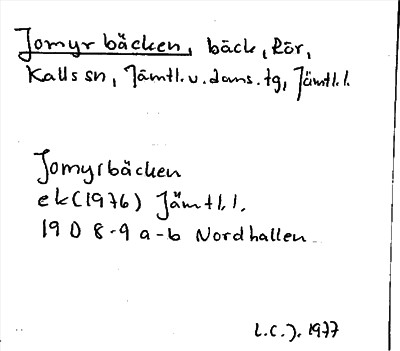 Jomyrbäcken, bäck, Rör,
Kalls sn, Jämtl.v.doms.tg, Jämtl.l.
Jomyrbäcken
ek(1976) Jämtl.l.
19 D 8-9 a-b Nordhallen
L.C.J. 1977